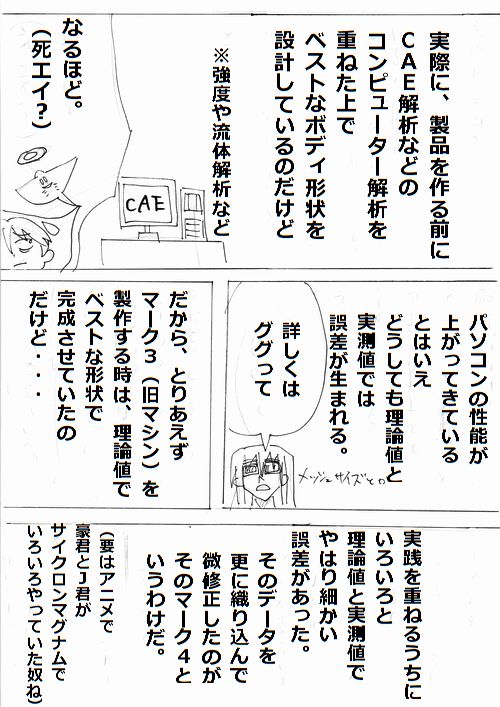 実際に、製品を作る前に
CAE解析などの
コンピューター解析を
重ねた上で
ベストなボディ形状を
設計しているのだけど
※強度や流体解析など
CAE
なるほど。
(死エイ?)
パソコンの性能が
上がってきている
とはいえ
どうしても理論値と
実測値では
誤差が生まれる。
詳しくは
ググって
メッシュサイズとか
だから、とりあえず
マーク3(旧マシン)を
製作する時は、理論値で
ベストな形状で
完成させていたの
だけど・・・
実践を重ねるうちに
いろいろと
理論値と実測値で
やはり細かい
誤差があった。
そのデータを
更に織り込んで
微修正したのが
そのマーク4と
いうわけだ。
(要はアニメで
豪君とJ君が
サイクロンマグナムで
いろいろやっていた奴ね)